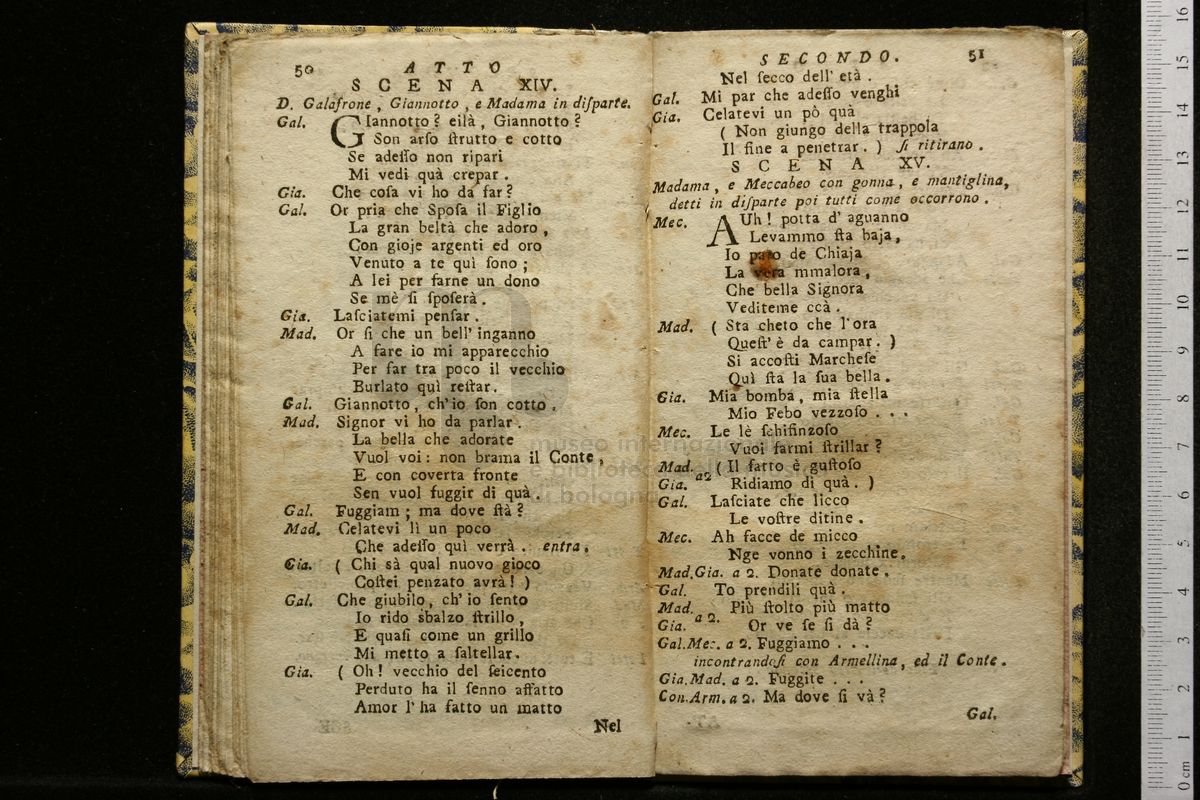 50 ATTO
SCENA XIV.
D. Galafrone, Giannotto, e Madama in diſparte.
Gal. GIannotto? eilà, Giannotto?
Son arſo ſtrutto e cotto
Se adeſſo non ripari
Mi vedi quà crepar.
Gia. Che coſa vi ho da far?
Gal. Or pria che Spoſa il Figlio
La gran beltà che adoro,
Con gioje argenti ed oro
Venuto a te quì ſono;
A lei per farne un dono
Se mè ſi ſpoſerà.
Gia. Laſciatemi penſar.
Mad. Or ſi che un bell' inganno
A fare io mi apparecchio
Per far tra poco il vecchio
Burlato quì reſtar.
Gal. Giannotto, ch'io ſon cotto.
Mad. Signor vi ho da parlar.
La bella che adorate
Vuol voi: non brama il Conte,
E con coverta fronte
Sen vuol fuggir di quà.
Gal. Fuggiam; ma dove ſtà?
Mad. Celatevi lì un poco
Che adeſſo quì verrà. entra.
Gia. ( Chi sà qual nuovo gioco
Coſtei penzato avrà! )
Gal. Che giubilo, ch' io ſento
Io rido sbalzo ſtrillo,
E quaſi come un grillo
Mi metto a ſaltellar.
Gia. ( Oh! vecchio del ſeicento
Perduto ha il ſenno affatto
Amor l' ha fatto un matto
Nel
SECONDO. 51
Nel ſecco dell' età.
Gal. Mi par che adeſſo venghi
Gia. Celatevi un pò quà
( Non giungo della trappola
Il fine a penetrar. ) ſi ritirano.
SCENA XV.
Madama, e Meccabeo con gonna, e mantiglina,
detti in diſparte poi tutti come occorrono.
Mec. AUh! potta d' aguanno
Levammo ſta baja,
Io pa de Chiaja
La vera mmalora,
Che bella Signora
Vediteme ccà.
Mad. ( Sta cheto che l'ora
Queſt' è da campar. )
Si accoſti Marcheſe
Quì ſta la ſua bella.
Gia. Mia bomba, mia ſtella
Mio Febo vezzoſo . . .
Mec. Le lè ſchifinzoſo
Vuoi farmi ſtrillar?
Mad. ( Il fatto è guſtoſo
Gia. a2 Ridiamo di quà. )
Gal. Laſciate che licco
Le voſtre ditine.
Mec. Ah facce de micco
Nge vonno i zecchine.
Mad.Gia. a 2. Donate donate.
Gal. To prendili quà.
Mad. Più ſtolto più matto
Gia. a 2. Or ve ſe ſi dà?
Gal.Mec. a 2. Fuggiamo . . .
incontrandoſi con Armellina, ed il Conte.
Gia.Mad. a 2. Fuggite . . .
Con.Arm. a 2. Ma dove ſi và?
Gal.